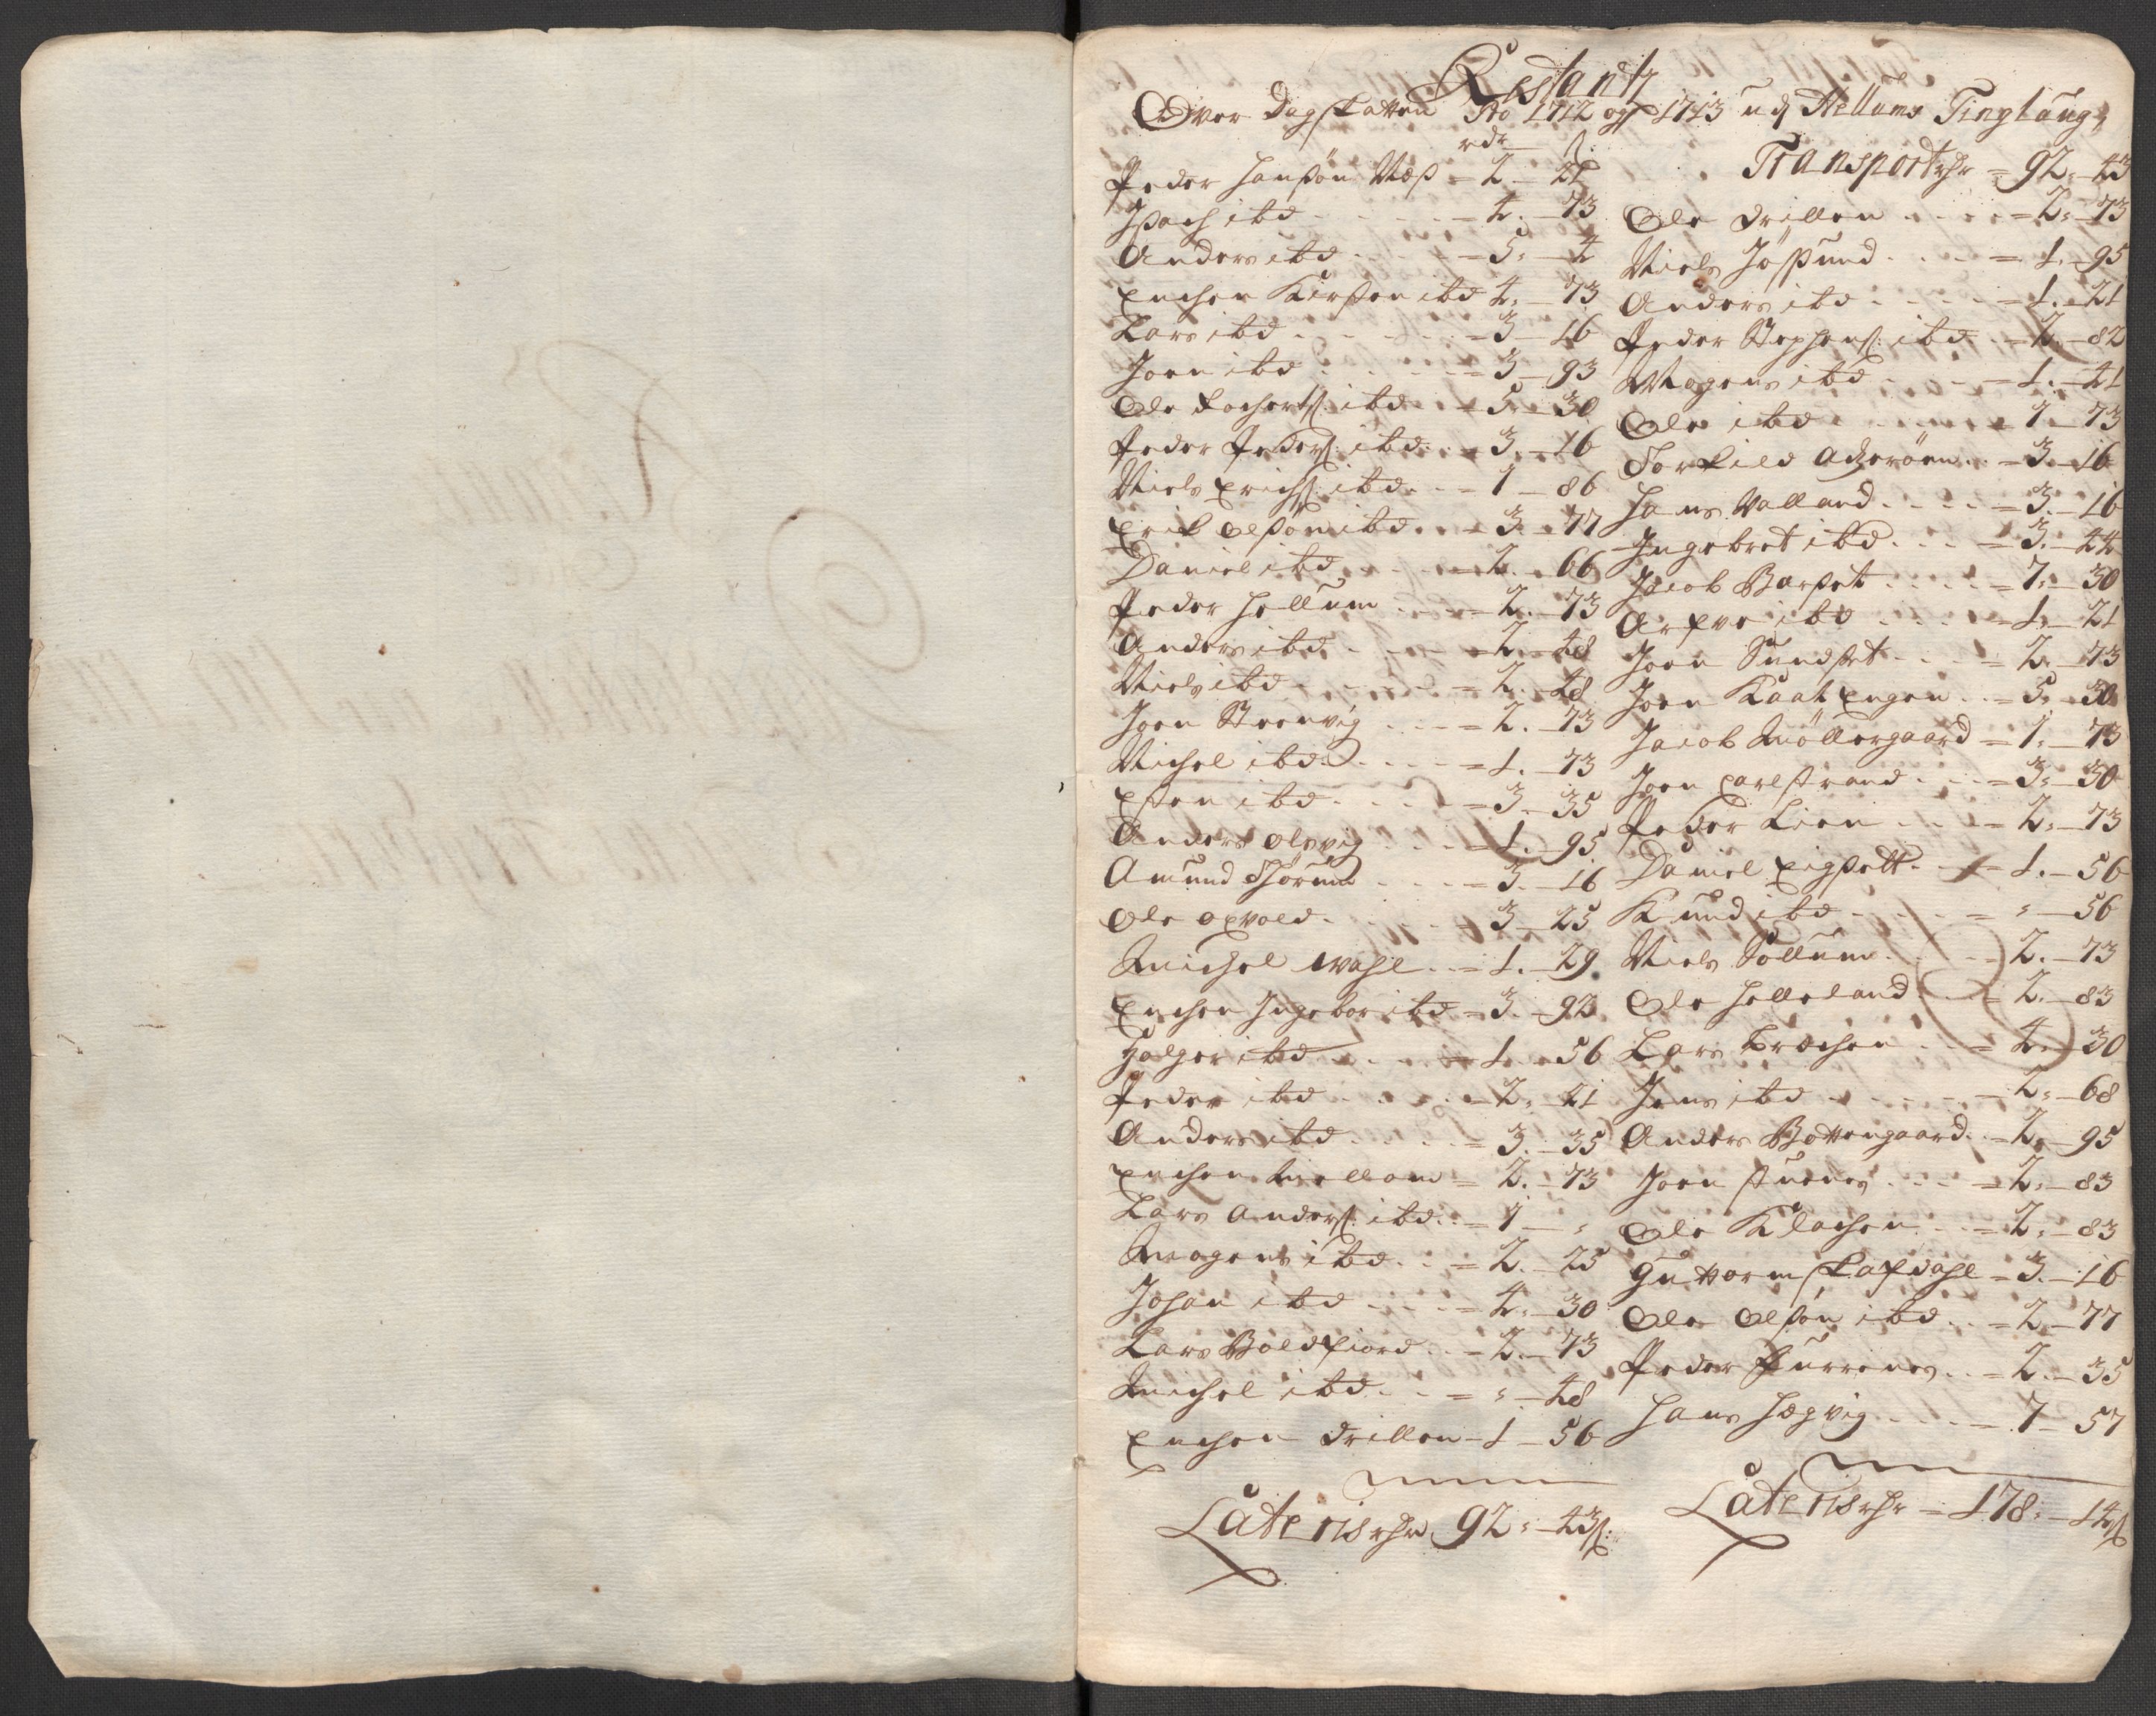 Restantz
Over Dagskatten Ao 1712 og 1713 udj Stellams Tinglaug
rdr ß:
Peder Hanßøn Næß = 2 - 21
Ißach ibd = 4. - 73
Anders ibd = 5 = 4
Enchen Kirsten ibd 4. - 73
Lars ibd = 3 - 16
Joen ibd = 3 - 93
Ole Fochertß: ibd = 5 - 30
Peder Pederß: ibd = 3. - 16
Niels Erichß: ibd = 1 - 86
Erik Olßøn ibd = 3 - 77
Daniel ibd = 2. - 66
Peder Hellum = 2. - 73
Anders ibd = 2 - 48
Niels ibd = 2. - 48
Joen Steenvig = 2. - 73
Michel ibd = 1. - 73
Esten ibd = 3. - 35
Anders Olsvig = 1. - 95
Amund = 3. - 16
Ole Opvold = 3 - 25
Michel Wahl = 1. - 29
Enchen Ingebor ibd = 3. - 92
Holger ibd = 1. - 56
Peder ibd = 2. - 21
Anders ibd = 3. - 35
Enchen Mellom = 2. - 73
Lars Anderß: ibd = 1 - "
Mogens ibd = 2. - 25
Johan ibd = 4. - 30
Lars Boldfiord = 2. - 73
Michel ibd = " - 48
Enchen Drillen - 1 - 56
Lateris rdr 92 = 43ß:
Transport rdr = 92 = 43
Ole Drillen = 2 = 73
Niels Jøßund = 1. - 95
Anders ibd = 1. - 21
Peder Stephenß: ibd = 2. - 82
Mogens ibd = 1. - 21
Ole ibd = 1 - 73
Torkild Agerøen = 3. - 16
Hans Valland = 3. - 16
Ingebret ibd = 3. - 44
Jacob Barset = 7 = 30
Arfve ibd = 1. - 21
Joen Sundset = 2. - 73
Joen Kaat Engen = 5. - 30
Jacob Møllergaard = 1. - 73
Joen Carlstrand = 3 = 30
Peder Lien = 2 = 73
Daniel Eigsett = 1. - 56
Knud ibd = " - 56
Niels Sollum 2. - 73
Ole Helleland = 2. - 83
Lars Krochen = 4. - 30
Jens ibd = 2 = 68
Anders Bottengaard = 2. - 95
Joen Stuenes = 2. - 83
Ole Klachen = 2. - 83
Guttorm Skafdahl = 3. - 16
Ole Olßøn ibd = 2 - 77
Peder Furrenes = 2. - 35
Hans Hegvig = 7 - 57
Lateris rdr = 178 = 14ß